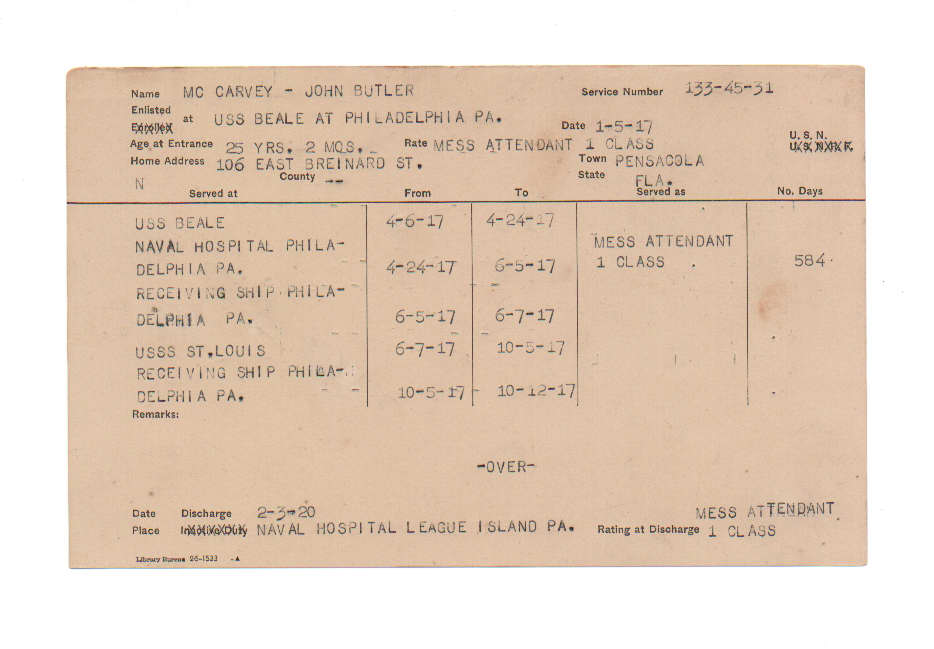 Name MC CARVEY - JOHN BUTLER Service Number 133-45-31
Enlisted
Enrolled at USS BEALE AT PHILADELPHIA PA. Date 1-5-17
Age at Entrance 25 YRS. 2 MOS. Rate MESS ATTENDANT 1 CLASS U. S. N.
U. S. N. R. F.
Home Address 106 EAST BREINARD ST. Town PENSACOLA
N County -- State FLA.
Served at From To Served as No. Days
USS BEALE 4-6-17 4-24-17
NAVAL HOSPITAL PHILA- MESS ATTENDANT
DELPHIA PA. 4-24-17 6-5-17 1 CLASS 584
RECEIVING SHIP PHILA-
DELPHIA PA. 6-5-17 6-7-17
USSS ST.LOUIS 6-7-17 10-5-17
RECEIVING SHIP PHILA-
DELPHIA PA. 10-5-17 10-12-17
Remarks:
-OVER-
Date Discharge 2-3-20 MESS ATTENDANT
Place Inactive Duty NAVAL HOSPITAL LEAGUE ISLAND PA. Rating at Discharge 1 CLASS
Library Bureau 26-1533 -A